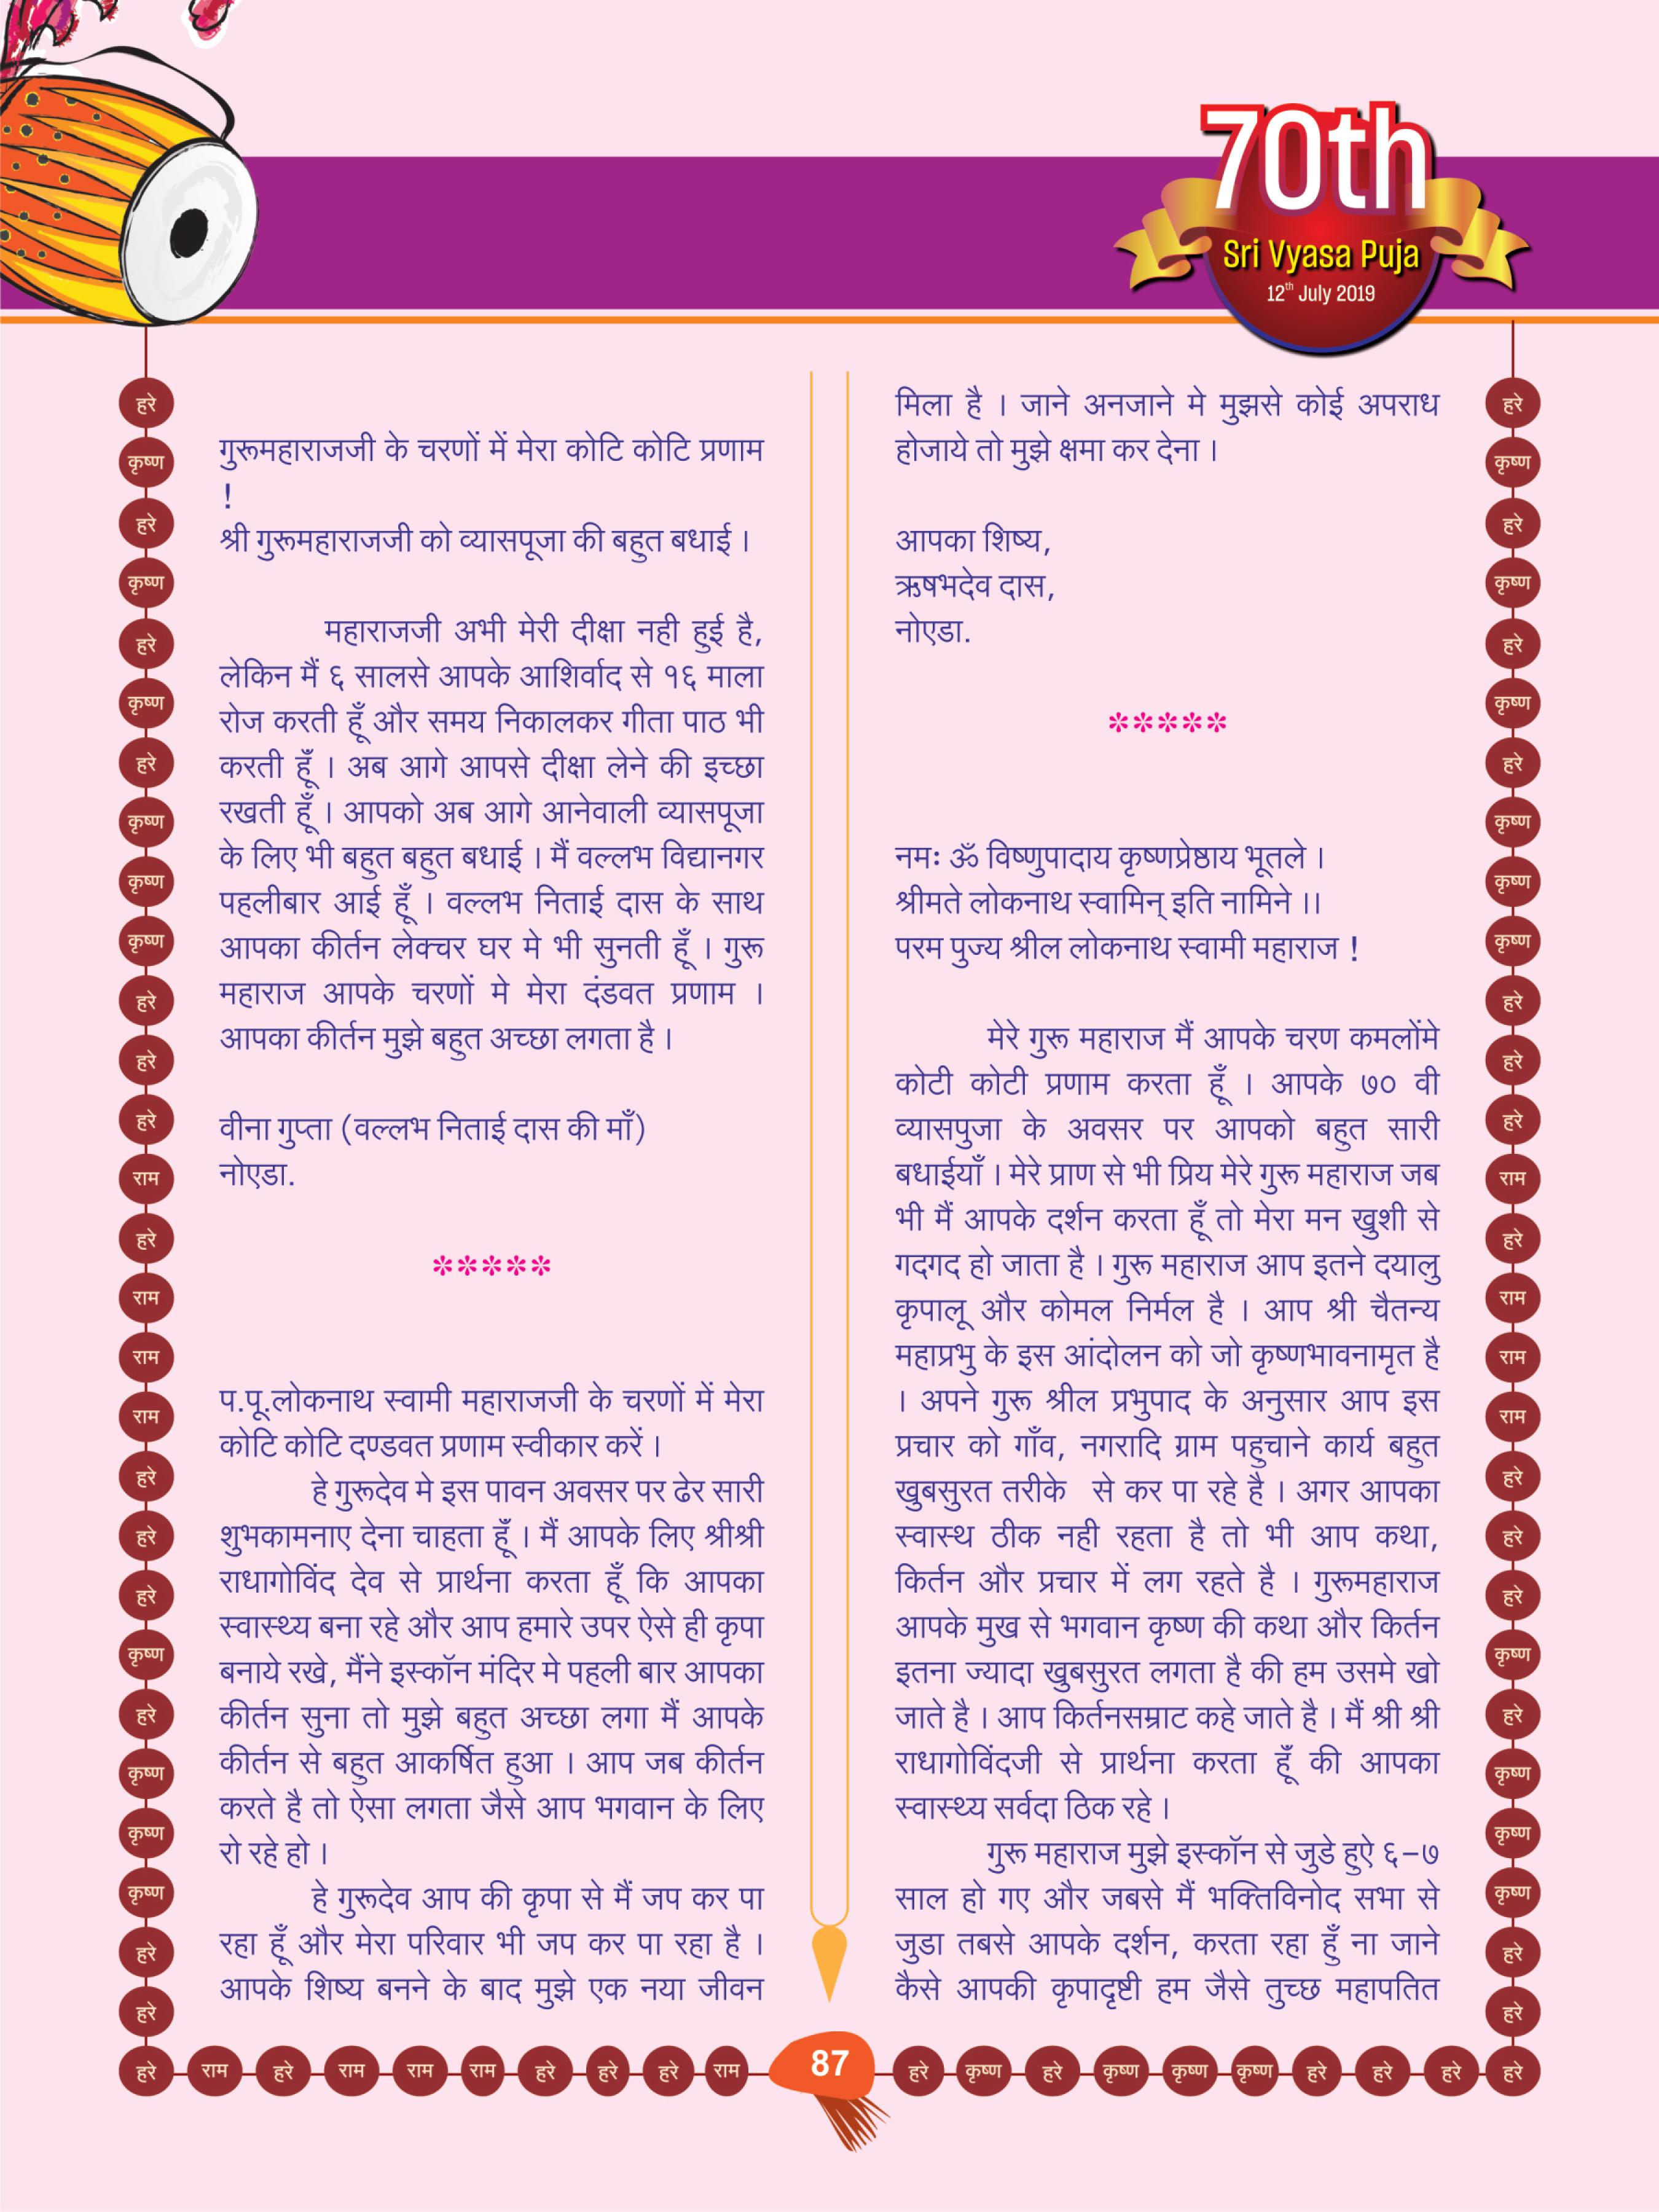 70th
Sri Vyasa Puja
12th July 2019
गुरूमहाराजजी के चरणों में मेरा कोटि कोटि प्रणाम
!
श्री गुरूमहाराजजी को व्यासपूजा की बहुत बधाई ।
महाराजजी अभी मेरी दीक्षा नही हुई है,
लेकिन मैं ६ सालसे आपके आशिर्वाद से १६ माला
रोज करती हूँ और समय निकालकर गीता पाठ भी
करती हूँ । अब आगे आपसे दीक्षा लेने की इच्छा
रखती हूँ । आपको अब आगे आनेवाली व्यासपूजा
के लिए भी बहुत बहुत बधाई । मैं वल्लभ विद्यानगर
पहलीबार आई हूँ । वल्लभ निताई दास के साथ
आपका कीर्तन लेक्चर घर मे भी सुनती हूँ । गुरू
महाराज आपके चरणों मे मेरा दंडवत प्रणाम ।
आपका कीर्तन मुझे बहुत अच्छा लगता है ।
वीना गुप्ता (वल्लभ निताई दास की माँ)
नोएडा.
*****
प.पू.लोकनाथ स्वामी महाराजजी के चरणों में मेरा
कोटि कोटि दण्डवत प्रणाम स्वीकार करें ।
हे गुरूदेव मे इस पावन अवसर पर ढेर सारी
शुभकामनाए देना चाहता हूँ । मैं आपके लिए श्रीश्री
राधागोविंद देव से प्रार्थना करता हूँ कि आपका
स्वास्थ्य बना रहे और आप हमारे उपर ऐसे ही कृपा
बनाये रखे, मैंने इस्कॉन मंदिर मे पहली बार आपका
कीर्तन सुना तो मुझे बहुत अच्छा लगा मैं आपके
कीर्तन से बहुत आकर्षित हुआ । आप जब कीर्तन
करते है तो ऐसा लगता जैसे आप भगवान के लिए
रो रहे हो ।
हे गुरूदेव आप की कृपा से मैं जप कर पा
रहा हूँ और मेरा परिवार भी जप कर पा रहा है ।
आपके शिष्य बनने के बाद मुझे एक नया जीवन
मिला है । जाने अनजाने मे मुझसे कोई अपराध
होजाये तो मुझे क्षमा कर देना ।
आपका शिष्य,
ऋषभदेव दास,
नोएडा.
*****
नमः ॐ विष्णुपादाय कृष्णप्रेष्ठाय भूतले ।
श्रीमते लोकनाथ स्वामिन् इति नामिने ।।
परम पुज्य श्रील लोकनाथ स्वामी महाराज !
मेरे गुरू महाराज मैं आपके चरण कमलोंमे
कोटी कोटी प्रणाम करता हूँ । आपके ७० वी
व्यासपुजा के अवसर पर आपको बहुत सारी
बधाईयाँ । मेरे प्राण से भी प्रिय मेरे गुरू महाराज जब
भी मैं आपके दर्शन करता हूँ तो मेरा मन खुशी से
गदगद हो जाता है । गुरू महाराज आप इतने दयालु
कृपालू और कोमल निर्मल है । आप श्री चैतन्य
महाप्रभु के इस आंदोलन को जो कृष्णभावनामृत है
। अपने गुरू श्रील प्रभुपाद के अनुसार आप इस
प्रचार को गाँव, नगरादि ग्राम पहुचाने कार्य बहुत
खुबसुरत तरीके से कर पा रहे है । अगर आपका
स्वास्थ ठीक नही रहता है तो भी आप कथा,
किर्तन और प्रचार में लग रहते है । गुरूमहाराज
आपके मुख से भगवान कृष्ण की कथा और किर्तन
इतना ज्यादा खुबसुरत लगता है की हम उसमे खो
जाते है । आप किर्तनसम्राट कहे जाते है । मैं श्री श्री
राधागोविंदजी से प्रार्थना करता हूँ की आपका
स्वास्थ्य सर्वदा ठिक रहे ।
गुरू महाराज मुझे इस्कॉन से जुडे हुऐ ६-७
साल हो गए और जबसे मैं भक्तिविनोद सभा से
जुडा तबसे आपके दर्शन, करता रहा हूँ ना जाने
कैसे आपकी कृपादृष्टी हम जैसे तुच्छ महापतित
हरे
कृष्ण
हरे
कृष्ण
हरे
कृष्ण
हरे
कृष्ण
कृष्ण
कृष्ण
हरे
हरे
हरे
राम
हरे
राम
राम
राम
हरे
हरे
हरे
कृष्ण
हरे
कृष्ण
कृष्ण
कृष्ण
हरे
हरे
हरे
कृष्ण
हरे
कृष्ण
हरे
कृष्ण
हरे
कृष्ण
कृष्ण
कृष्ण
हरे
हरे
हरे
राम
हरे
राम
राम
राम
हरे
हरे
हरे
कृष्ण
हरे
कृष्ण
कृष्ण
कृष्ण
हरे
हरे
हरे राम हरे राम राम राम हरे हरे हरे राम 87 हरे कृष्ण हरे कृष्ण कृष्ण कृष्ण हरे हरे हरे हरे